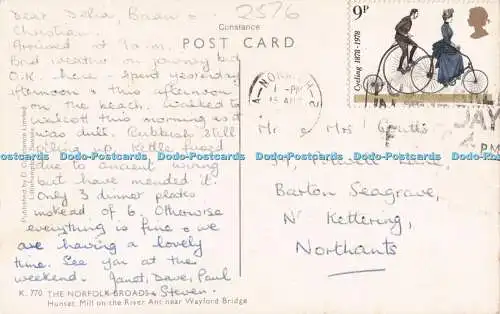 2576
Constance
POST CARD
Dear Delia, Brian &
Christian.
Arrived at 9 a.m.
Bad weather on journey but
O.K. here - spent yesterday
afternoon & this afternoon
on the beach. Walked to
walcott this morning as it
was dull. Rubbish still
piling up. Kettle fused
due to ancient wiring
but have mended it.
Only 3 dinner plates
instead of 6. Otherwise
everything is fine & we
are having a lovely
time. See you at the
weekend. Janet, Dave, Paul
& Steven.
9P
Cycling 1878-1978
Mr & Mrs Coutts
Lane,
Barton Seagrave,
Nr Kettering,
Northants
Dodo-Postcards Dodo-Postcards Dodo-Postcards Dodo-Postcards Dodo-Postcards
K. 770 THE NORFOLK BROADS
Hunset Mill on the River Ant near Wayford Bridge